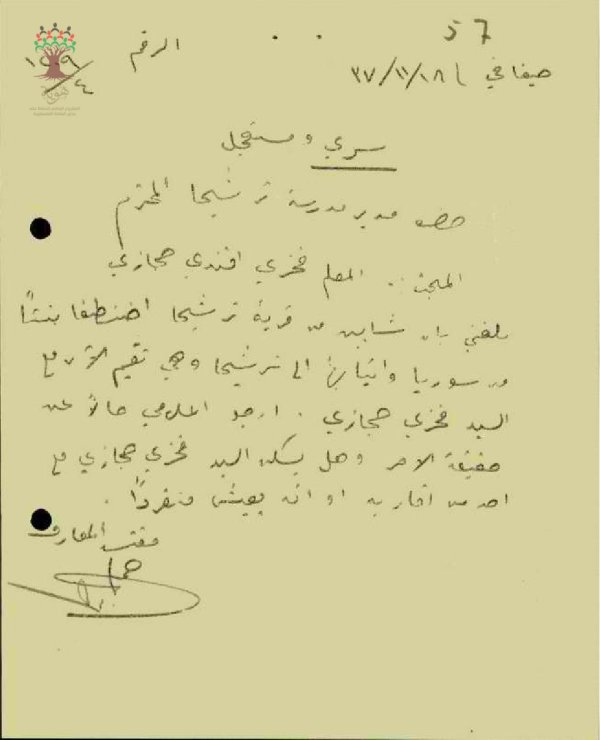 57
الرقم ١٠٩/٤
حيفا في ٣٧/١١/١٨
سري ومستعجل
حضرة مدير مدرسة ترشيحا المحترم
المبحث : المعلم فخري افندي حجازي
بلغني بان شابين من قرية ترشيحا اختطفا بنتاً
من سوريا واتيا بها الى ترشيحا وهي تقيم الآن مع
السيد فخري حجازي . ارجو اعلامي حالاً عن
حقيقة الامر وهل يسكن السيد فخري حجازي مع
احد من اقاربه او انه يعيش منفرداً .
مفتش المعارف